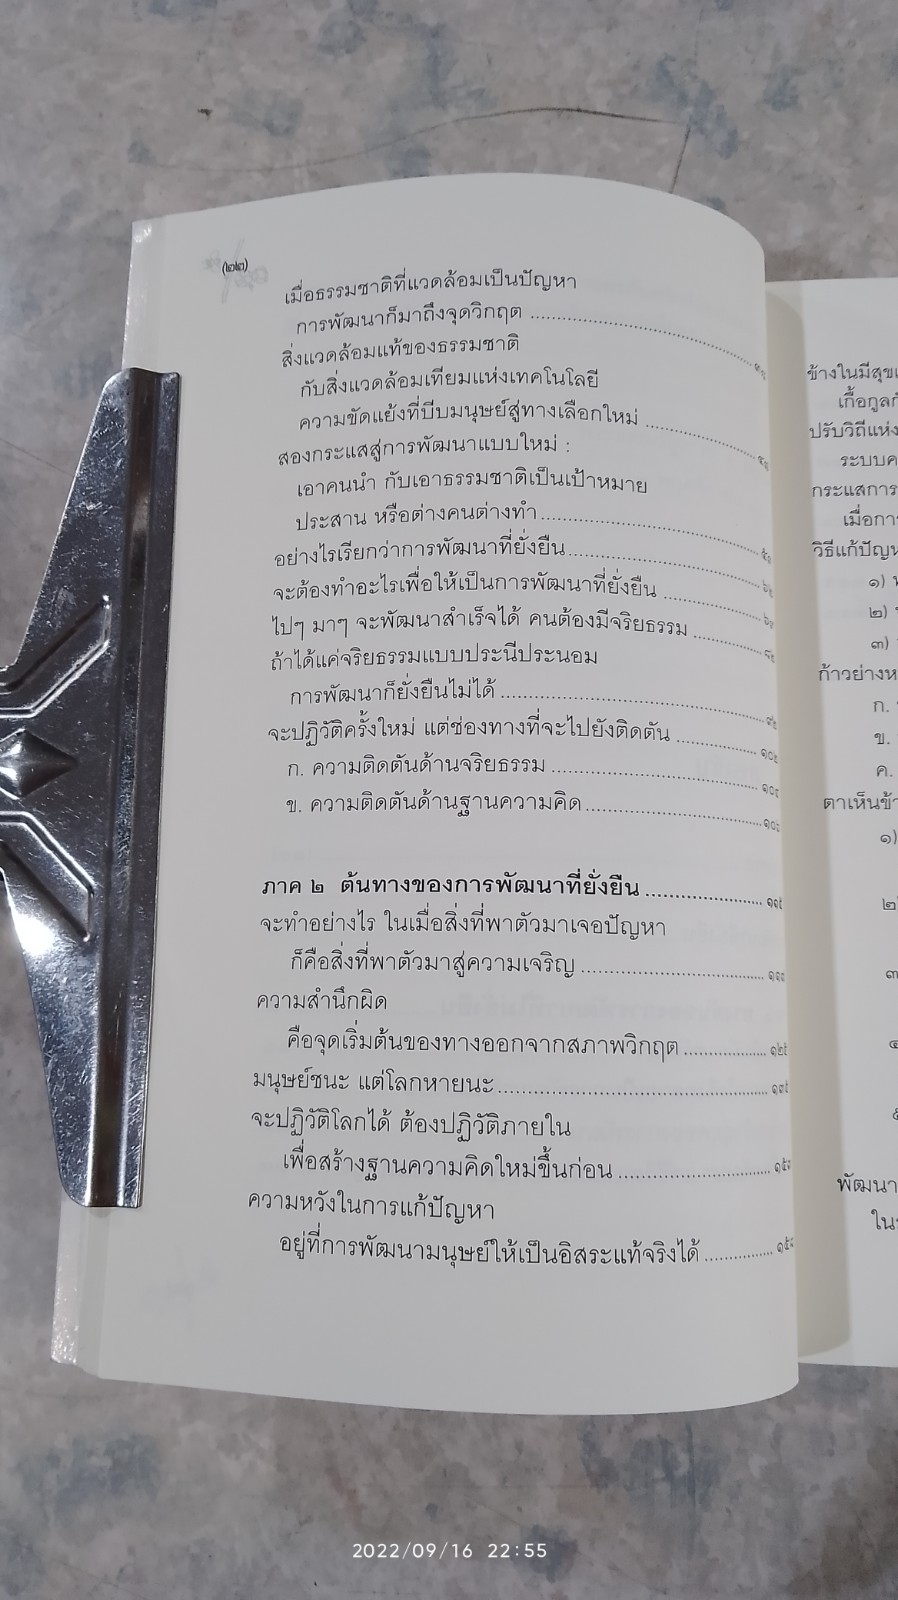 (๒๒)
เมื่อธรรมชาติที่แวดล้อมเป็นปัญหา
การพัฒนาก็มาถึงจุดวิกฤต
สิ่งแวดล้อมแท้ของธรรมชาติ
กับสิ่งแวดล้อมเทียมแห่งเทคโนโลยี
ความขัดแย้งที่บีบมนุษย์สู่ทางเลือกใหม่
สองกระแสสู่การพัฒนาแบบใหม่ :
เอาคนนำ กับเอาธรรมชาติเป็นเป้าหมาย
ประสาน หรือต่างคนต่างทำ
อย่างไรเรียกว่าการพัฒนาที่ยั่งยืน
จะต้องทำอะไรเพื่อให้เป็นการพัฒนาที่ยั่งยืน
ไปๆ มาๆ จะพัฒนาสำเร็จได้ คนต้องมีจริยธรรม
ถ้าได้แค่จริยธรรมแบบประนีประนอม
การพัฒนาก็ยั่งยืนไม่ได้
จะปฏิวัติครั้งใหม่ แต่ช่องทางที่จะไปยังติดตัน
ก. ความติดตันด้านจริยธรรม
ข. ความติดตันด้านฐานความคิด
ภาค ๒ ต้นทางของการพัฒนาที่ยั่งยืน
จะทำอย่างไร ในเมื่อสิ่งที่พาตัวมาเจอปัญหา
ก็คือสิ่งที่พาตัวมาสู่ความเจริญ
ความสำนึกผิด
คือจุดเริ่มต้นของทางออกจากสภาพวิกฤต
มนุษย์ชนะ แต่โลกหายนะ
จะปฏิวัติโลกได้ ต้องปฏิวัติภายใน
เพื่อสร้างฐานความคิดใหม่ขึ้นก่อน
ความหวังในการแก้ปัญหา
อยู่ที่การพัฒนามนุษย์ให้เป็นอิสระแท้จริงได้
ข้างในมีสุข
เกื้อกูล
ปรับวิถีแห่ง
ระบบ
กระแสการ
เมื่อ
วิธีแก้
๑)
๒)
๓)
ก้าวอย่าง
ก.
ข.
ค.
ตาเห็น
๑)
พัฒนา
2022/09/16 22:55